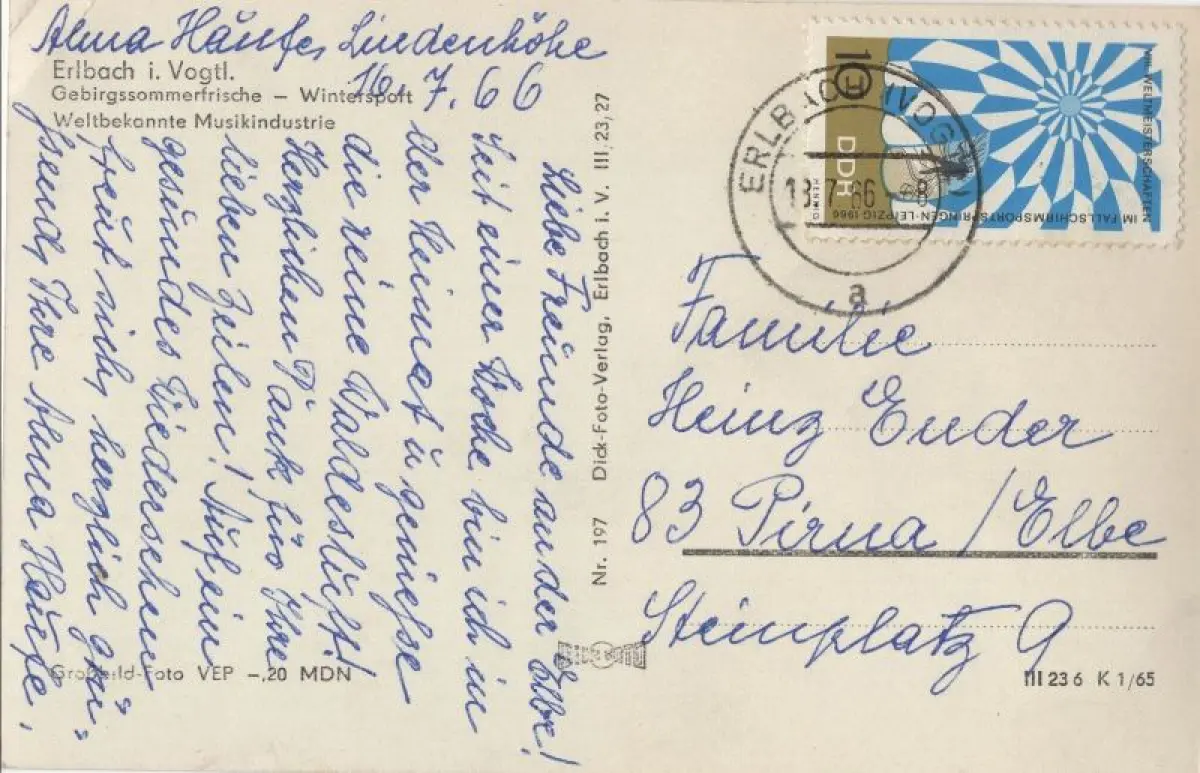 Alma Häufe, Lindenhöhe
Erlbach i. Vogtl.
Gebirgssommerfrische – Wintersport
Weltbekannte Musikindustrie
16.7.66
Liebe Freunde an der Elbe!
Seit einer Woche bin ich in
der Heimat u genieße
die reine Waldesluft!
Herzlichen Dank fürs Ihre
lieben Zeilen! Auf ein
gesundes Wiedersehen
freut sich, herzlich grü-
ßend, Ihre Alma Häufe.
Großbild-Foto VEP –,20 MDN
Nr. 197 Dick-Foto-Verlag, Erlbach i. V. III, 23, 27
10
DDR
HENNIG
VIII. WELTMEISTERSCHAFTEN
IM FALLSCHIRMSPORTSPRINGEN-LEIPZIG 1966
ERLBACH (VOGTL)
18.7.66
a
Familie
Heinz Ender
83 Pirna / Elbe
Steinplatz 9
III 23 6 K 1/65